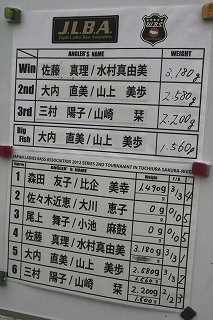 J.L.B.A.
Japan Ladies Bass Association
W.B.S.
ANGLER'S NAME WEIGHT
Win 佐藤 真理/水村真由美 3,180g
2nd 大内 直美/山上 美歩 2,580g
3rd 三村 陽子/山崎 栞 2,200g
Big Fish 大内 直美/山上 美歩 1,560g
JAPAN LADIES BASS ASSOCIATION 2012 SERIES 2ND TOURNAMENT IN TUCHIURA SAKURA-RIVER
ANGLER'S NAME
1 森田 友子/比企 美幸 1,490g 3/3
2 佐々木近恵/大川 恵子 0g 0/5
3 尾上 舞子/小池 麻鼓 0g 0/5
4 佐藤 真理/水村真由美 3,180g
5 大内 直美/山上 美歩 2,580g
6 三村 陽子/山崎 栞 2,200g